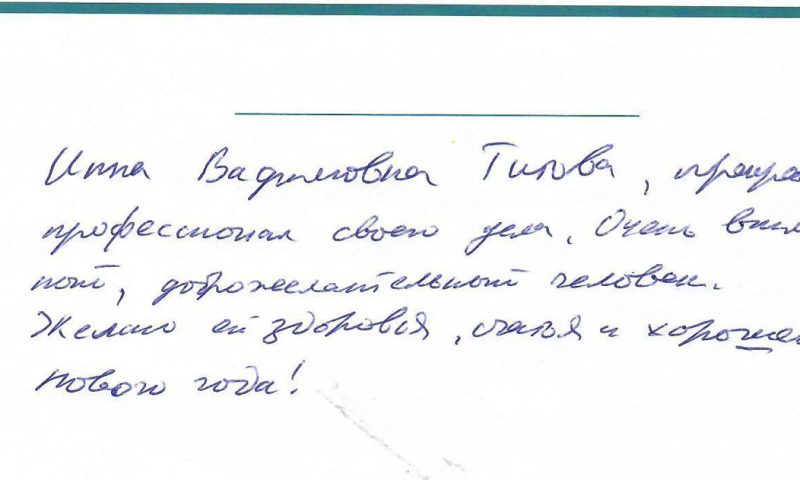 Инна Вадимовна Титова, прекрас
профессионал своего дела. Очень внима
ный, доброжелательный человек.
Желаю ей здоровья, счастья и хороше
нового года!